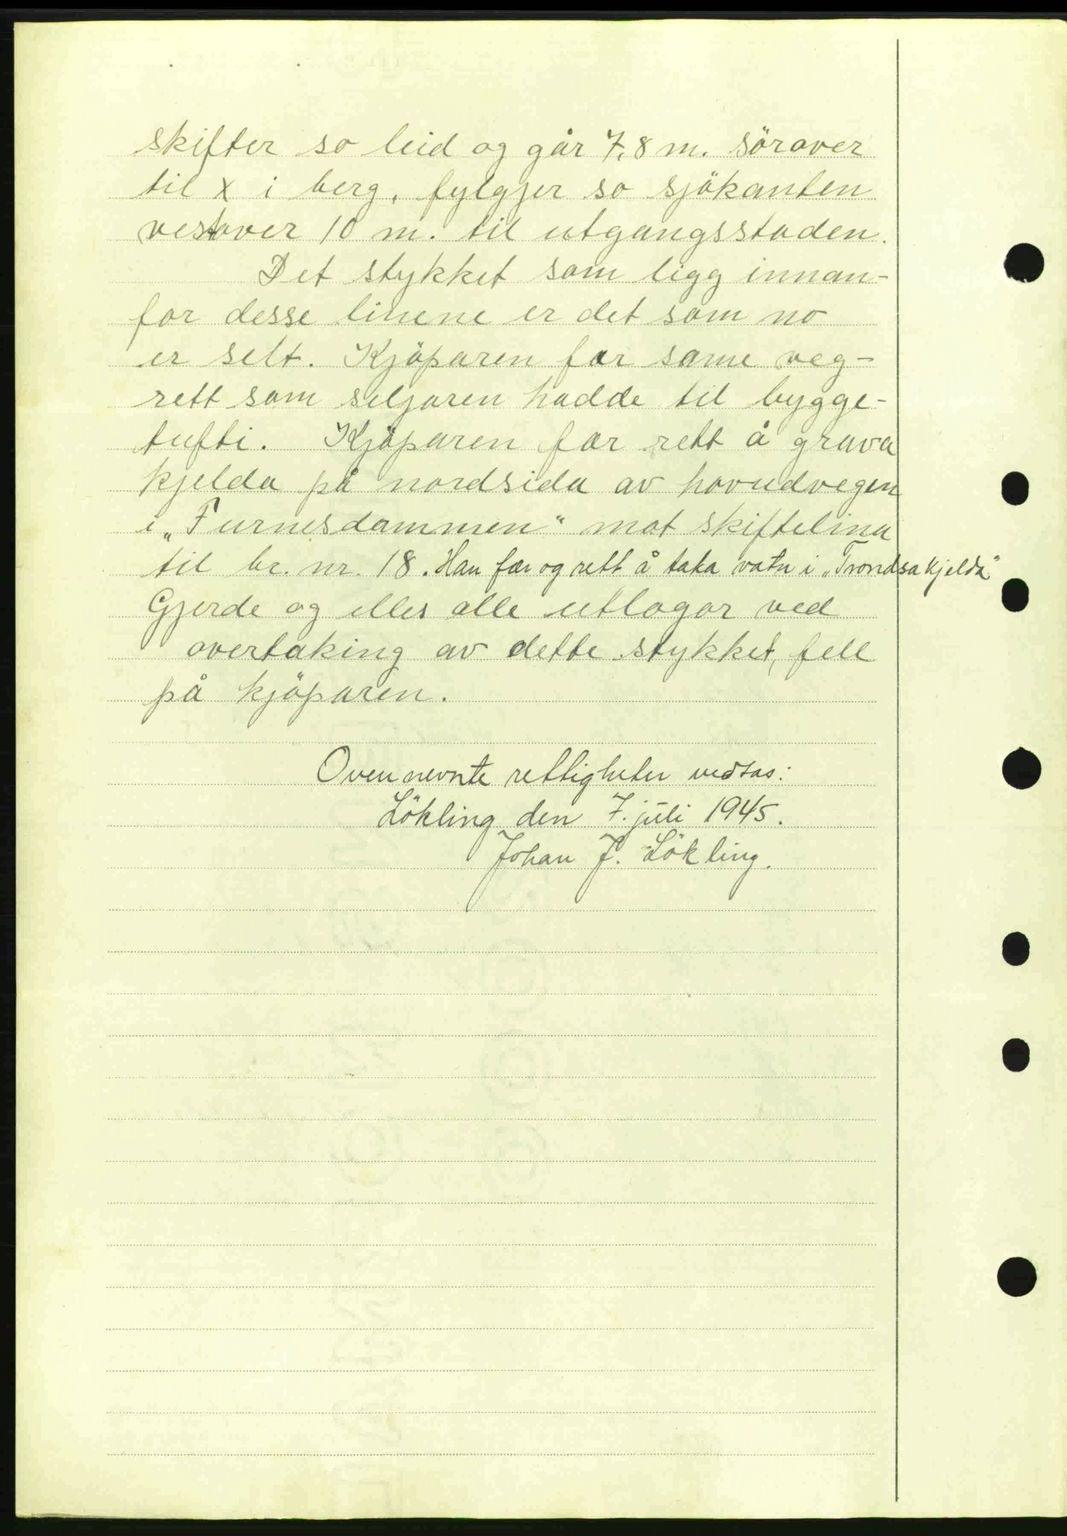 skifter so leid og går 7,8 m. söraver
til x i berg, fylgjer so sjökanten
vestover 10 m. til utgangsstaden.
Det stykket som ligg innan-
for desse linene er det som no
er selt. Kjöparen fær same veg-
rett som seljaren hadde til bygge-
tufti. Kjöparen fær rett å grava
kjelda på nordsida av hovudvegen
i „Furnesdammen" mot skiftelina
til br. nr. 18. Han fær og rett å taka vatn i „Trondsakjelda"
Gjerde og elles alle utlogor ved
overtaking av dette stykket, fell
på kjöparen.
Ovennevnte rettigheter vedtas:
Lökling den 7. juli 1945.
Johan J. Lökling.